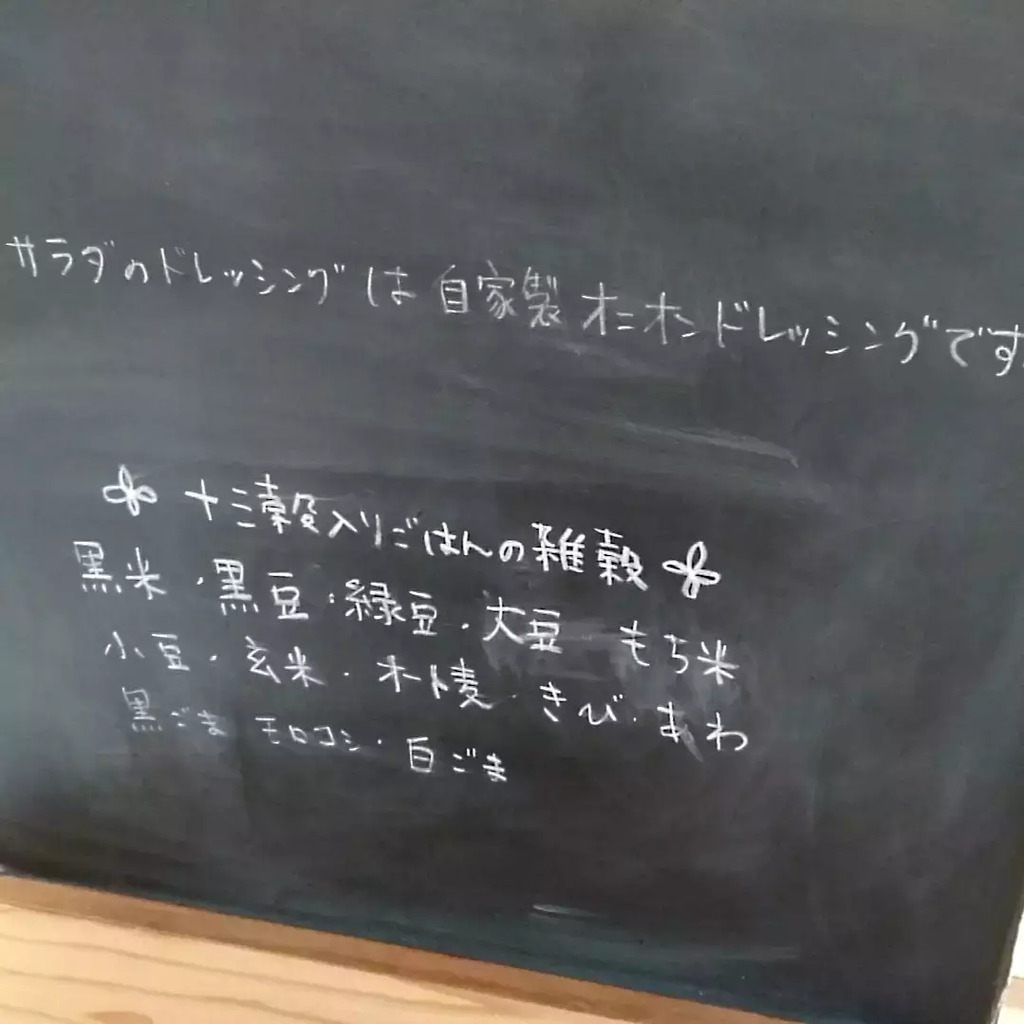 サラダのドレッシングは自家製オニオンドレッシングです。
十三穀入りごはんの雑穀
黒米・黒豆・緑豆・大豆 もち米
小豆・玄米・オート麦 きび・あわ
黒ごま モロコシ・白ごま